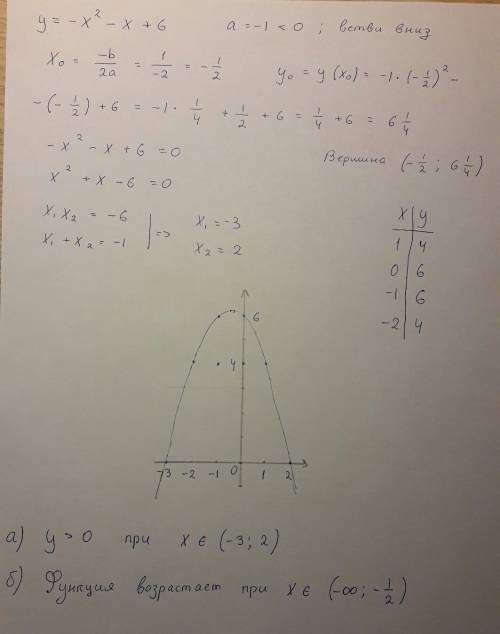 y = -x² - x + 6    a = -1 < 0 ; ветви вниз
x₀ = -b/2a = 1/-2 = -1/2    y₀ = y(x₀) = -1·(-1/2)² -
-(-1/2) + 6 = -1· 1/4 + 1/2 + 6 = 1/4 + 6 = 6 1/4
-x² - x + 6 = 0    Вершина (-1/2; 6 1/4)
x² + x - 6 = 0
x₁x₂ = -6
x₁ + x₂ = -1
=> x₁ = -3
x₂ = 2
x y
1 4
0 6
-1 6
-2 4
6
4
-3 -2 -1 0 1 2
а) y > 0 при x ∈ (-3; 2)
б) Функция возрастает при x ∈ (-∞; -1/2)